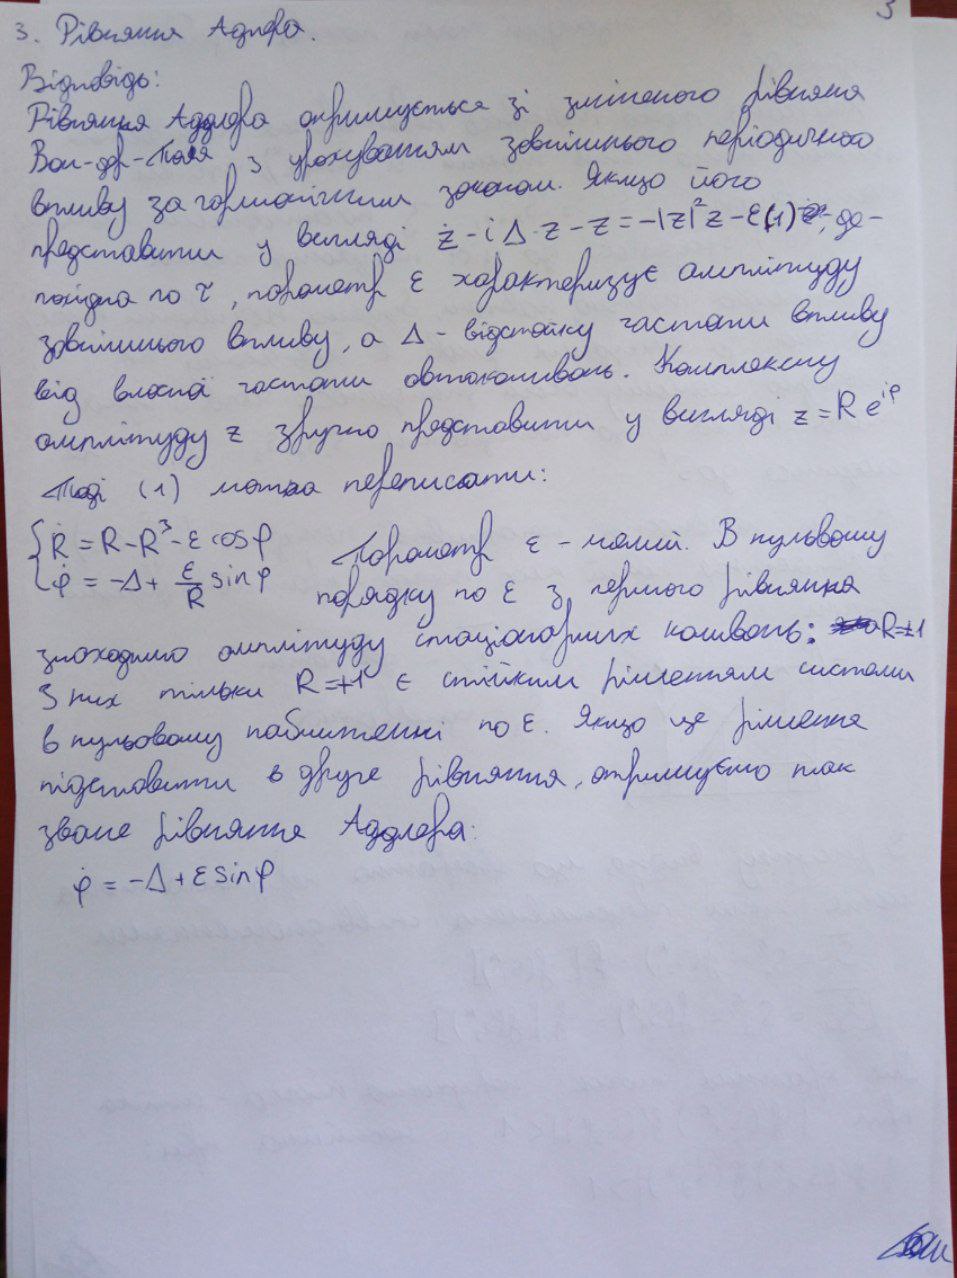 3
3. Рівняння Адлера.
Відповідь:
Рівняння Аддлера отримується зі зміненого рівняння
Ван-дер-Поля з урахуванням зовнішнього періодичного
впливу за гармонічним законом. Якщо його
представити у вигляді ż - iΔ·z - z = -|z|²z - ε(1) ż, де -
похідна по τ, параметр ε характеризує амплітуду
зовнішнього впливу, а Δ - відстойку частоти впливу
від власної частоти автоколивань. Комплексну
амплітуду z зручно представити у вигляді z = R e^{iφ}
Тоді (1) можна переписати:
{ Ṙ = R - R³ - ε cos φ
φ̇ = -Δ + ε/R sin φ
Параметр ε - малий. В нульовому
порядку по ε з першого рівняння
знаходимо амплітуду стаціонарних коливань: R=±1
З них тільки R=+1 є стійким рішенням системи
в нульовому наближенні по ε. Якщо це рішення
підставити в друге рівняння, отримуємо так
зване рівняння Аддлера:
φ̇ = -Δ + ε sin φ